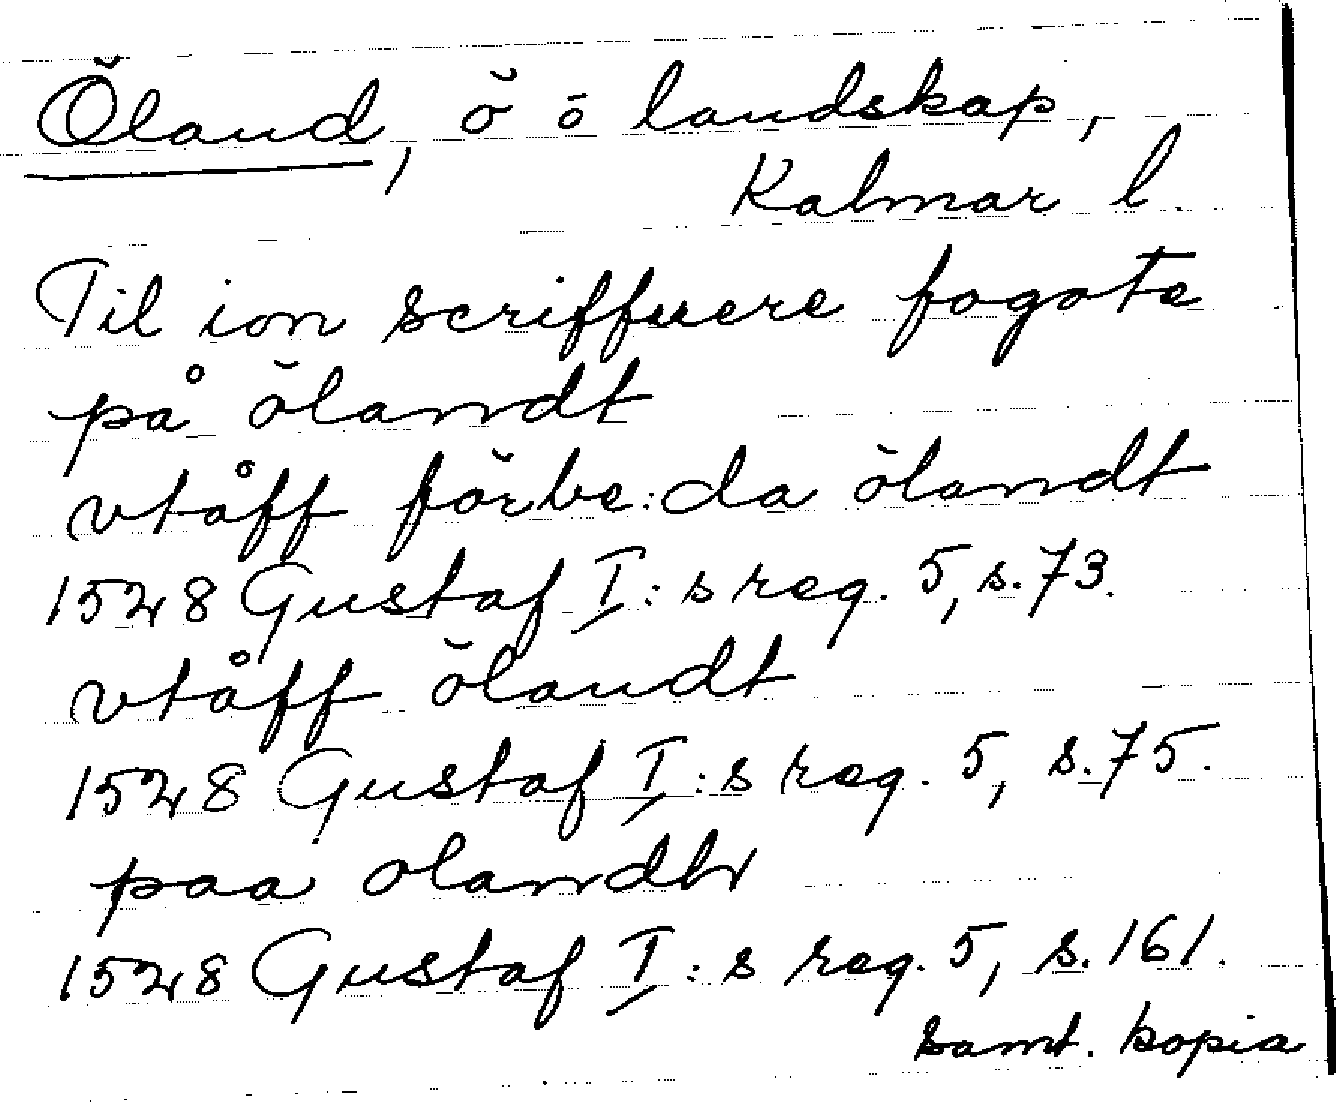 Öland, ö o landskap,
Kalmar l.
Til ion scriffuere fogote
på ölandt
vtåff förbe:da ölandt
1528 Gustaf I:s reg. 5, s. 73.
vtåff ölandt
1528 Gustaf I:s reg. 5, s. 75.
paa olandh
1528 Gustaf I:s reg. 5, s. 161.
samt. kopia